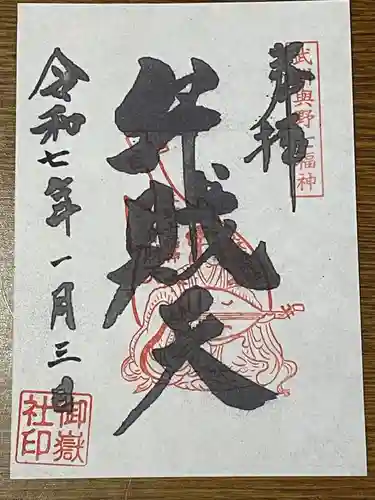 奉拝
武州與野七福神
弁財天
令和七年一月三日
御嶽社印